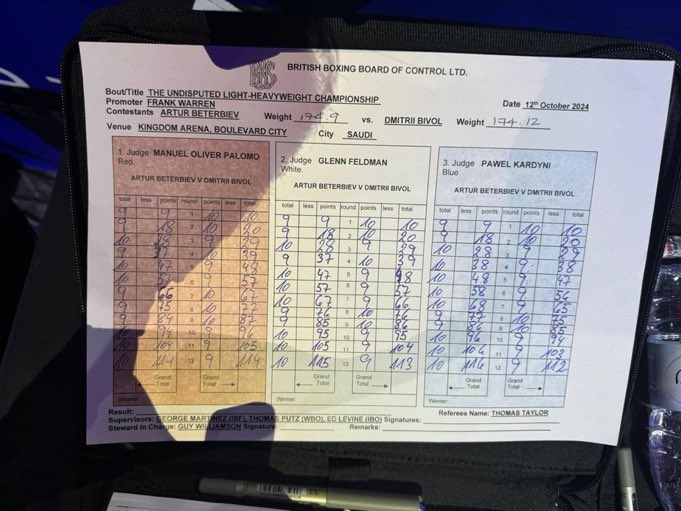 BRITISH BOXING BOARD OF CONTROL LTD.
Bout/Title THE UNDISPUTED LIGHT-HEAVYWEIGHT CHAMPIONSHIP
Promoter FRANK WARREN
Date 12th October 2024
Contestants ARTUR BETERBIEV Weight 174.9 vs. DMITRII BIVOL Weight 174.12
Venue KINGDOM ARENA, BOULEVARD CITY City SAUDI
1. Judge MANUEL OLIVER PALOMO
Red.
ARTUR BETERBIEV V DMITRII BIVOL
total less points round points less total
9 9 1 10 10
9 18 2 10 20
10 28 3 9 29
9 37 4 10 39
10 47 5 9 48
10 57 6 9 57
9 66 7 10 67
9 75 8 10 77
9 84 9 10 87
10 94 10 9 96
10 104 11 9 105
10 114 12 9 114
Grand Total Grand Total
Winner:
2. Judge GLENN FELDMAN
White.
ARTUR BETERBIEV V DMITRII BIVOL
total less points round points less total
9 9 1 10 10
9 18 2 10 20
10 28 3 9 29
9 37 4 10 39
10 47 5 9 48
10 57 6 9 57
10 67 7 9 66
9 76 8 10 76
9 85 9 10 86
10 95 10 9 95
10 105 11 9 104
10 115 12 9 113
Grand Total Grand Total
Winner:
3. Judge PAWEL KARDYNI
Blue.
ARTUR BETERBIEV V DMITRII BIVOL
total less points round points less total
9 9 1 10 10
9 18 2 10 20
10 28 3 9 29
10 38 4 9 38
10 48 5 9 47
10 58 6 9 56
10 68 7 9 65
9 77 8 10 75
9 86 9 10 85
10 96 10 9 94
10 106 11 9 103
10 116 12 9 112
Grand Total Grand Total
Winner:
Result:
Referees Name: THOMAS TAYLOR
Supervisors: GEORGE MARTINEZ (IBF), THOMAS PUTZ (WBO), ED LEVINE (IBO) Signatures:
Steward In Charge: GUY WILLIAMSON Signature: Remarks: